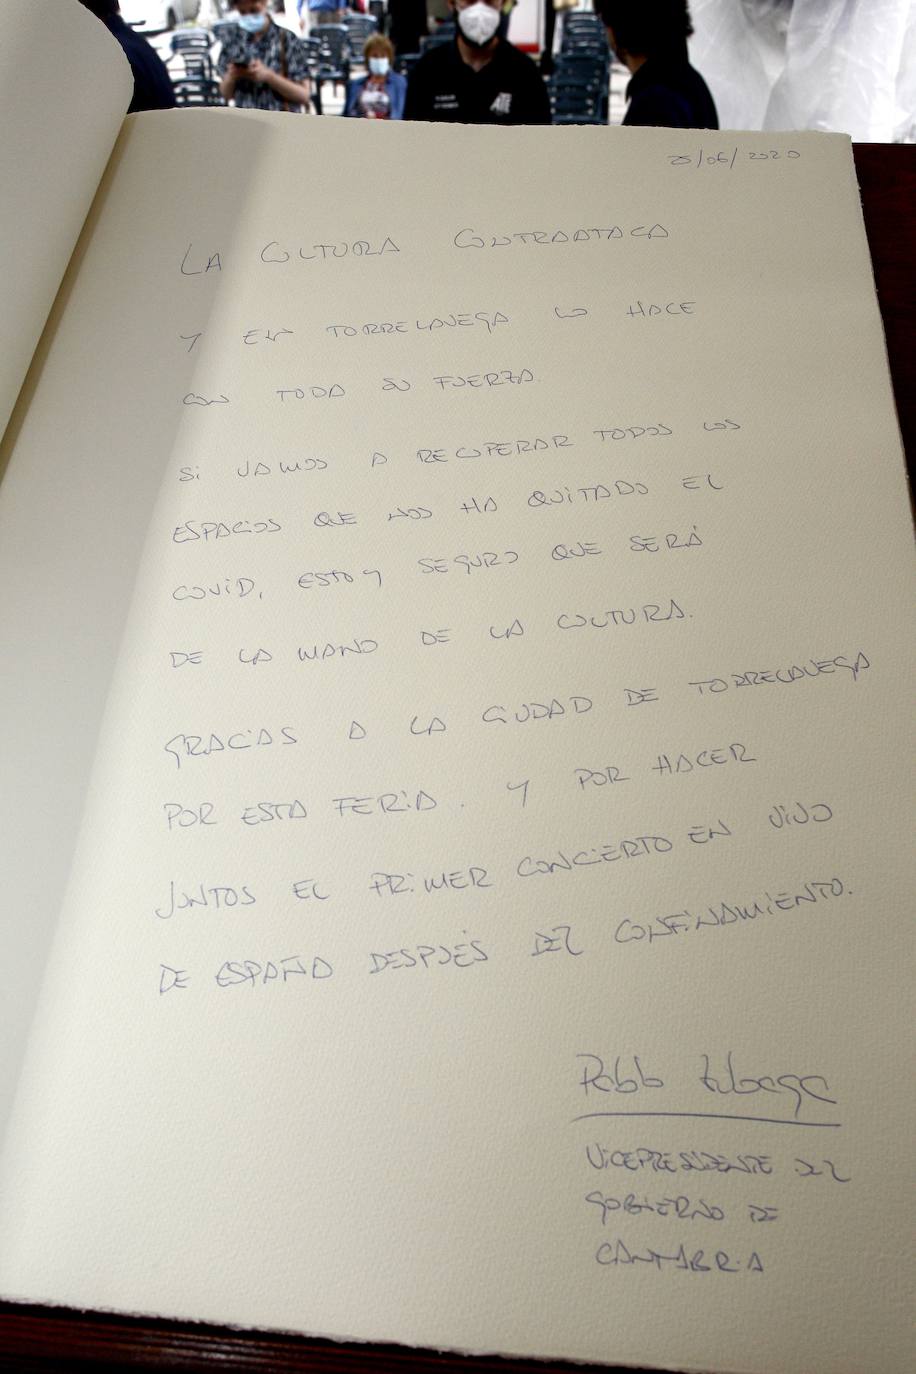 25/06/2020
LA CULTURA CONTRAATACA
Y EN TORRELAVEGA LO HACE
CON TODA SU FUERZA.
Si VAMOS A RECUPERAR TODOS LOS
ESPACiOS QUE NOS HA QUiTADO EL
COViD, ESTOY SEGURO QUE SERÁ
DE LA MANO DE LA CULTURA.
GRACiAS A LA CiUDAD DE TORRELAVEGA
POR ESTA FERiA. Y POR HACER
JUNTOS EL PRiMER CONCiERTO EN ViVO
DE ESPAÑA DESPUÉS DEL CONFiNAMiENTO.
Pablo Zuloaga
ViCEPRESiDENTE DEL
GOBiERNO DE
CANTABRiA
ATE